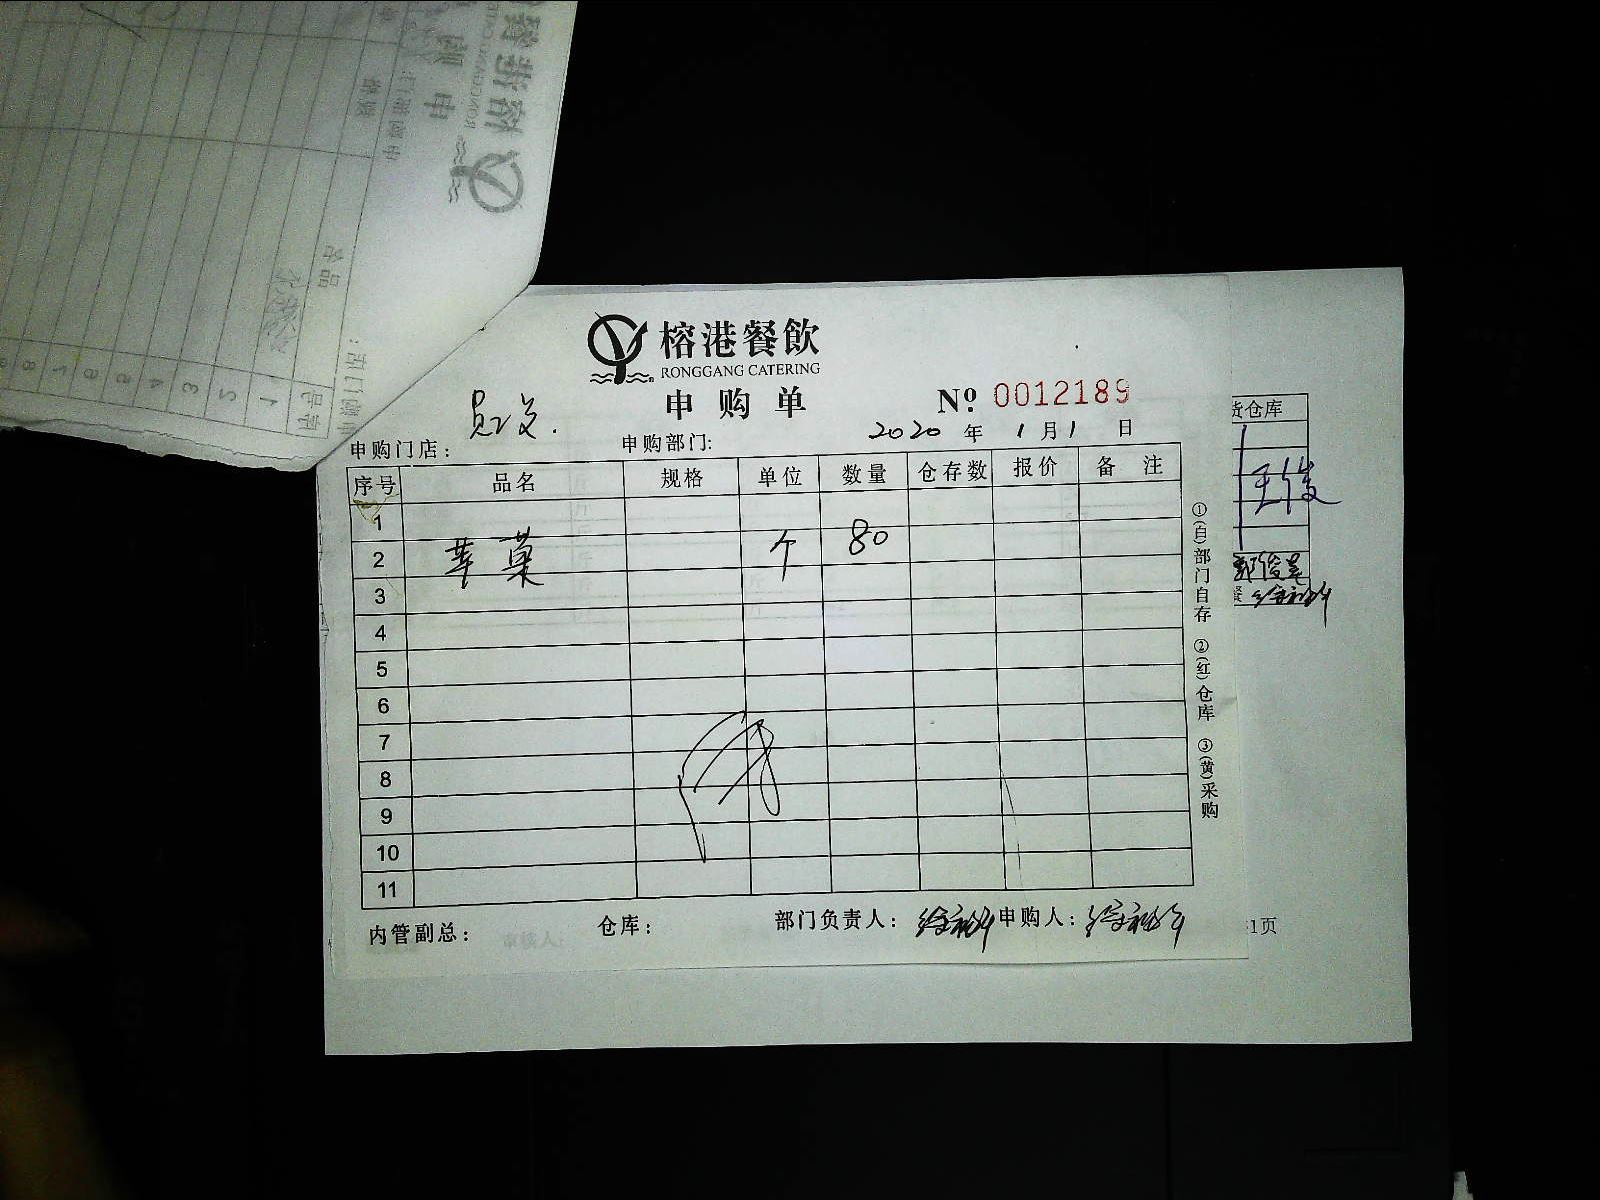 榕港餐飲
RONGGANG CATERING
申购单 Nº 0012189
员工餐.
申购门店: 申购部门: 2020年 1月1日
序号 品名 规格 单位 数量 仓存数 报价 备注
1
2 苹菓 个 80
3
4
5
6
7
8
9
10
11
内管副总: 仓库: 部门负责人: 申购人:
①(白)部门自存 ②(红)仓库 ③(黄)采购
货仓库
王俊
1页